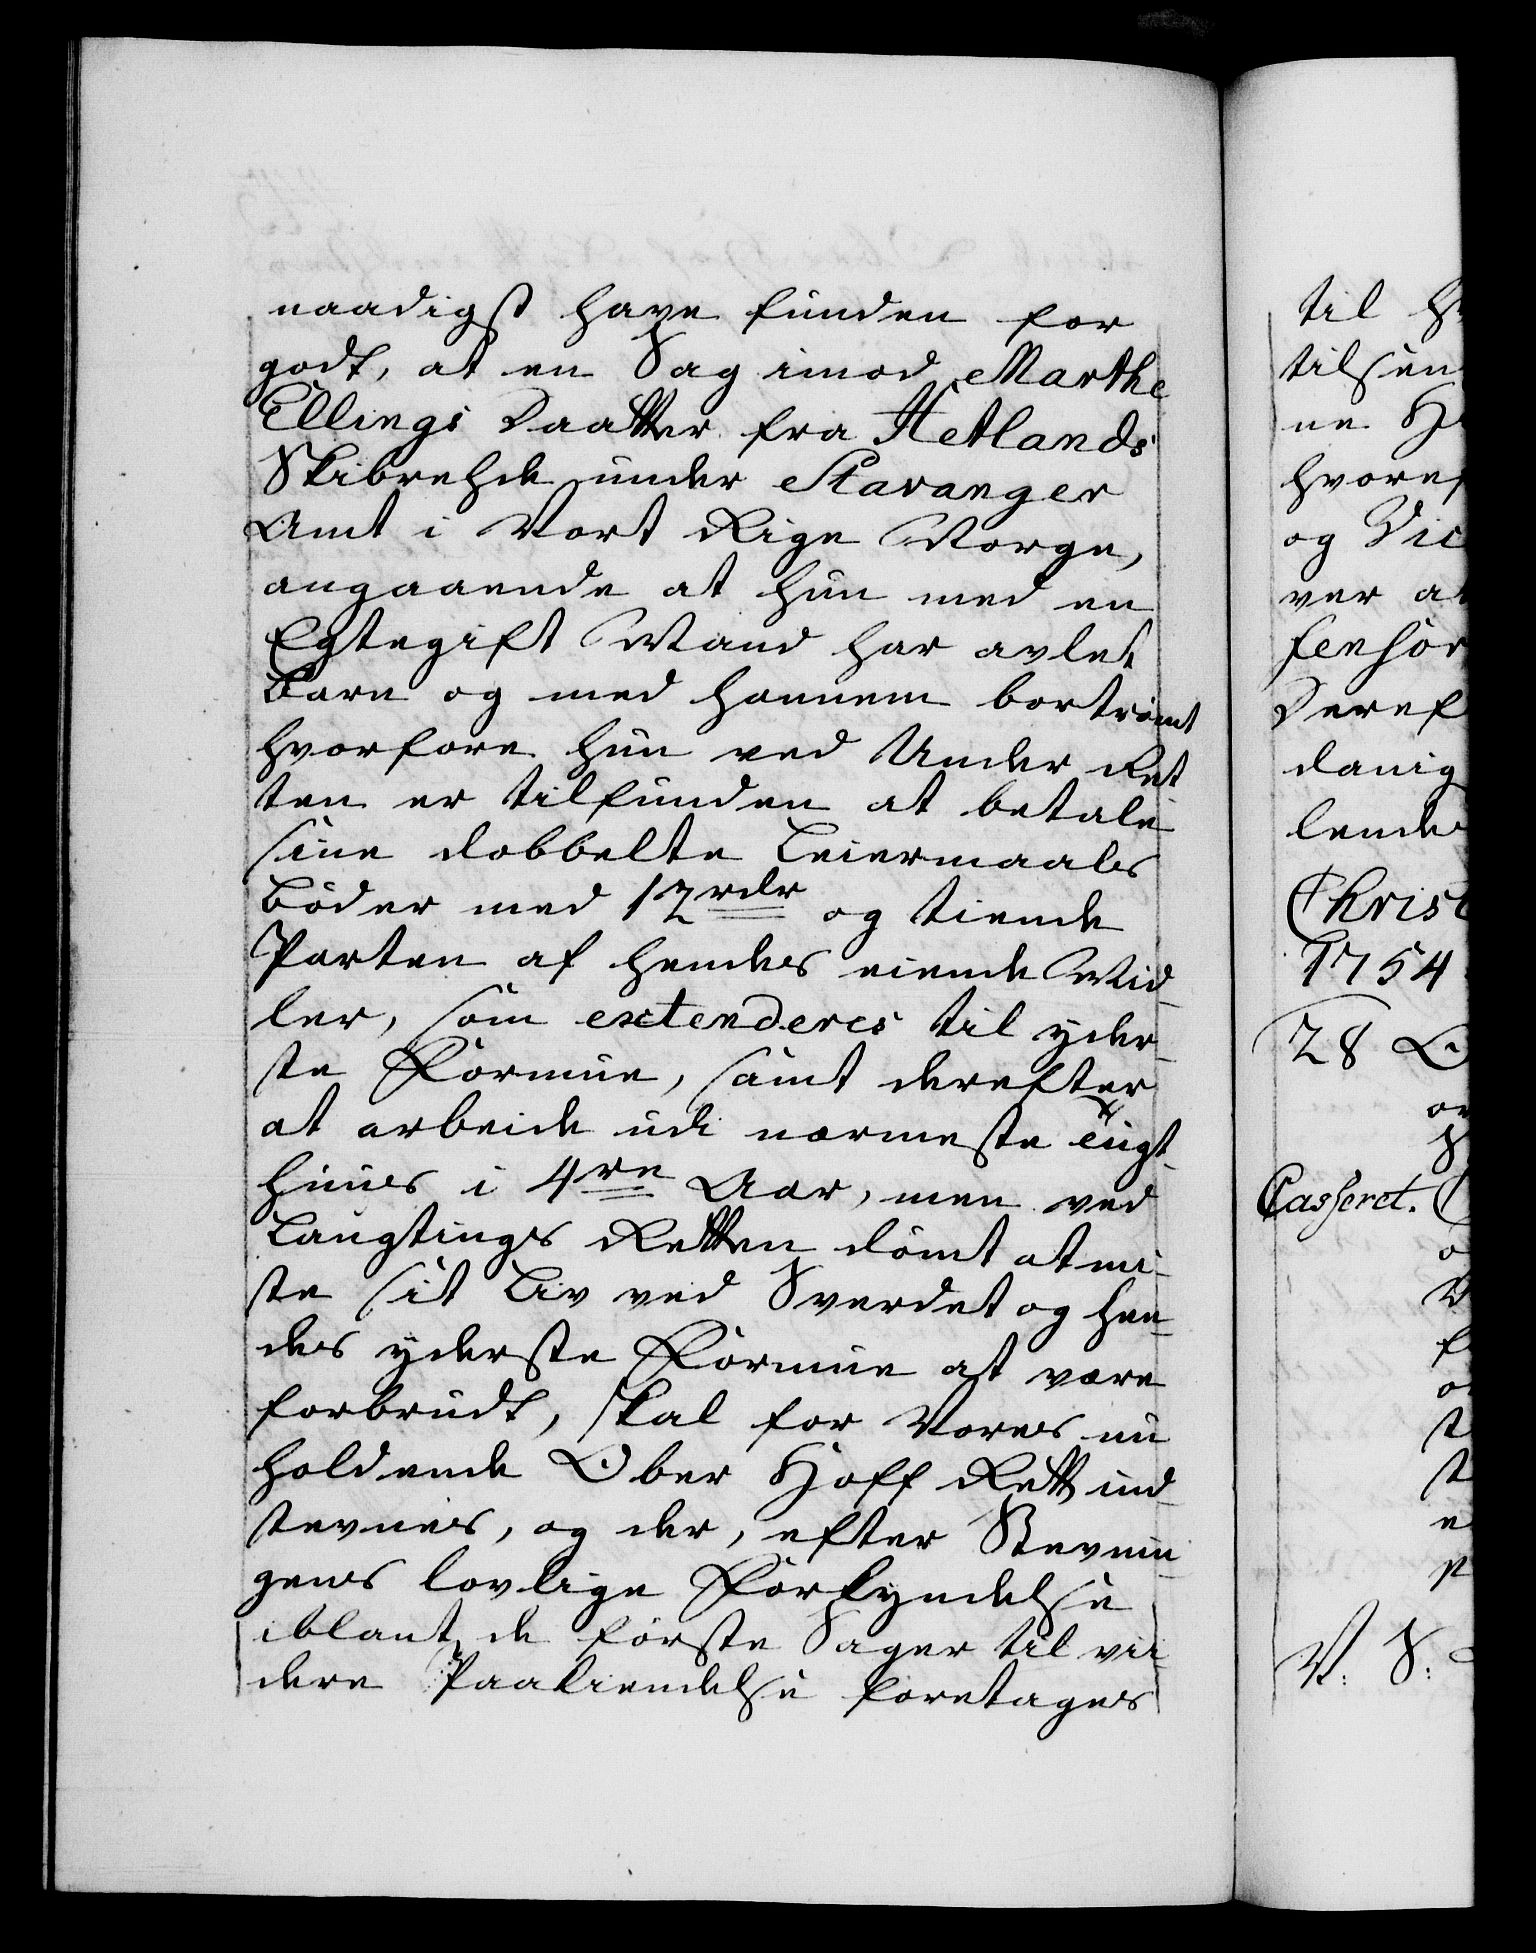 naadigst have funden for
godt, at en Sag imod Marthe
Ellings Daatter fra Hetlands
Skibrehde under Stavanger
Amt i Vort Rige Norge,
angaaende at hun med en
Egtegift Mand har avlet
Barn og med hannem bortrømt
hvorfore hun ved Under Ret
ten er tilfunden at betale
sine dobbelte Leiermaals
Bøder med 12 rdr og tiende
Parten af hendes eiende Mid-
ler, som extenderes til yder-
ste Formue, samt derefter
at arbeide udi nærmeste Tugt-
huus i 4re Aar, men ved
Laugtings Retten dømt at mi-
ste sit Liv ved Sverdet og hen-
des yderste Formue at være
forbrudt, skal for Vores nu
holdende Ober Hoff Rett ind-
stevnes, og der, efter Stevnin-
gens lovlige Forkyndelse
iblant de første Sager til vii-
dere Paakiendelse foretages
til
tilsen
ne
og Vic
ver at
fensor
Deref
danig
lende
Christ
1754
28
Casseret.
V: S: